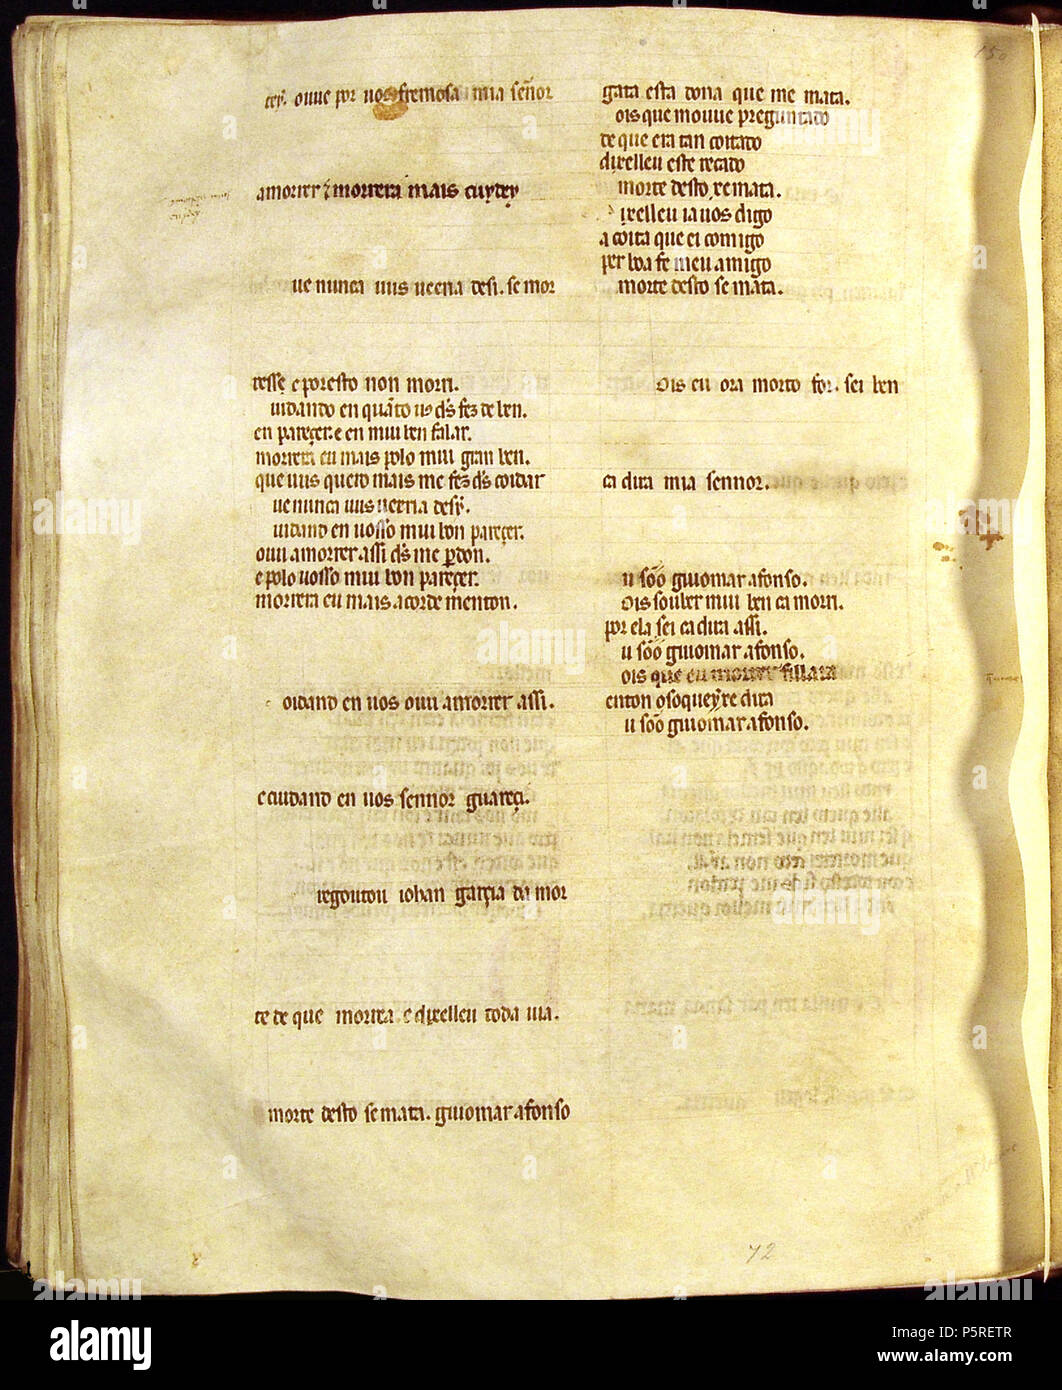 cer. ouue por uos fremosa mia señor
amorrer ⁊ morrera mais cuydey
ue nunca uus ueeria desi. se mor
resse e poresto non morri.
uidando en quãto uos ds fez de ben.
en pareçer. e en mui ben falar.
morrera eu mais polo mui gran ben.
que uus quero mais me fez ds coidar
ue nunca uus ueeria desy.
uidand en uosso mui bon pareçer.
oui amorrer. assi ds me perdon.
e polo uosso mui bon pareçer.
morrera eu mais acorde menton.
oidand en uos oui amorrer assi.
e cuidand en uos sennor guareçi.
regoutou iohan garçia da mor
te de que morria e dixelleu toda uia.
morte desto se mata. guiomar afonso
gata esta dona que me mata.
ois que mouue preguntado
de que era tan coitado
dixelleu este recado
morte desto xe mata.
ixelleu ia uos digo
a coita que ei comigo
per boa fe meu amigo
morte desto se mata.
ois eu ora morto for. sei ben
ca dira mia sennor.
u sõo guiomar afonso.
ois souber mui ben ca morri.
por ela sei ca dira assi.
u sõo guiomar afonso.
ois que eu morrer fillara
enton o soqueyxe dira
u sõo guiomar afonso.
72
alamy
Image ID: P5RETR
www.alamy.com